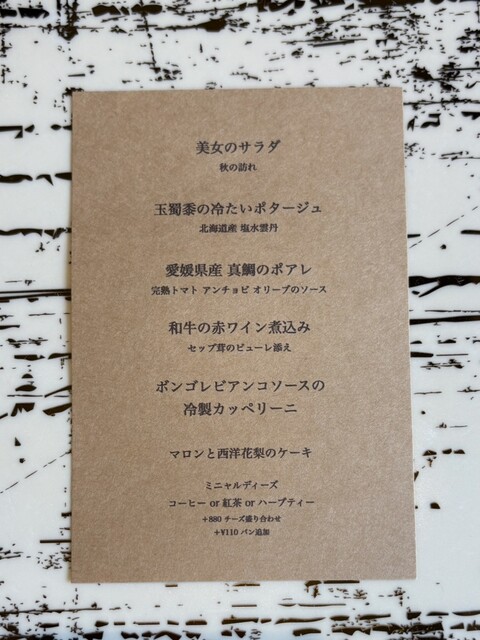 美女のサラダ
秋の訪れ
玉蜀黍の冷たいポタージュ
北海道産 塩水雲丹
愛媛県産 真鯛のポアレ
完熟トマト アンチョビ オリーブのソース
和牛の赤ワイン煮込み
セップ茸のピューレ添え
ボンゴレビアンコソースの
冷製カッペリーニ
マロンと西洋花梨のケーキ
ミニャルディーズ
コーヒー or 紅茶 or ハーブティー
+880 チーズ盛り合わせ
+¥110 パン追加